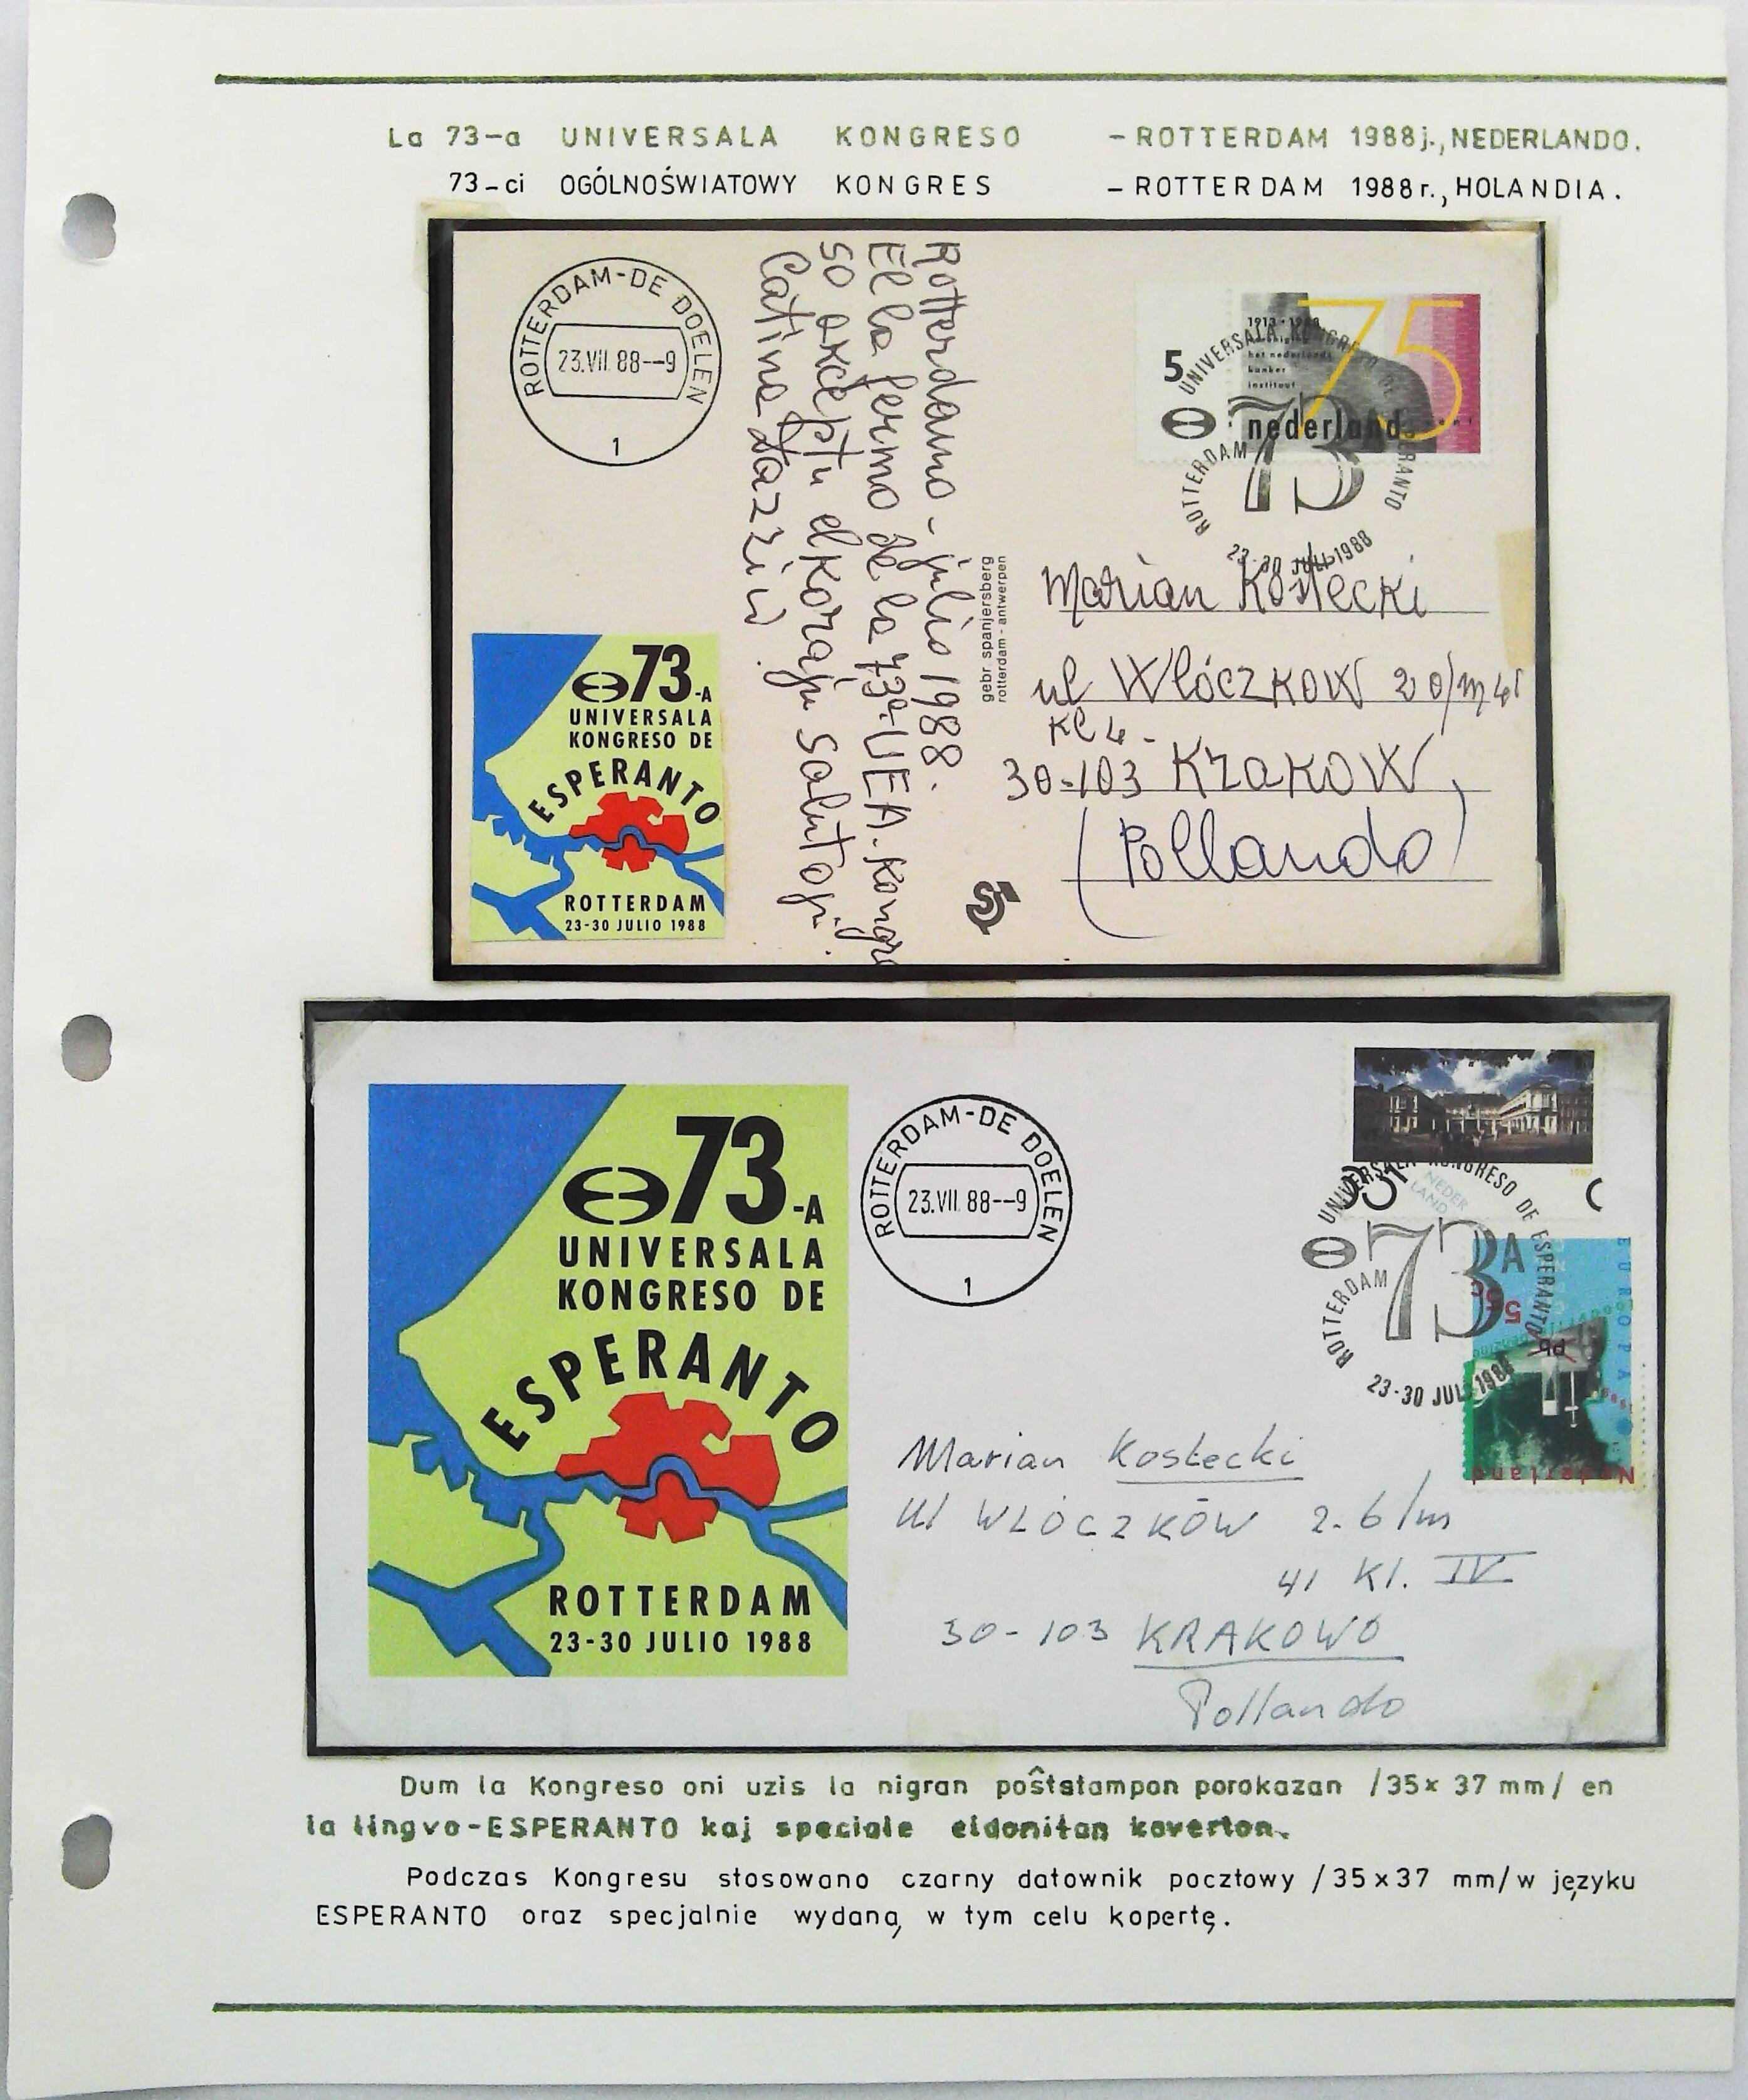 La 73-a UNIVERSALA KONGRESO - ROTTERDAM 1988j., NEDERLANDO.
73-ci OGÓLNOŚWIATOWY KONGRES - ROTTERDAM 1988r., HOLANDIA.
ROTTERDAM-DE DOELEN
23.VII.88--9
1
Rotterdamo - julio 1988.
El la fermo de la 73a-UEA.-Kongre
so akceptu elkorajn salutojn.
Catina
75
1913-1988
het nederlands
kanker
instituut
5
nederland
UNIVERSALA KONGRESO DE ESPERANTO
73
ROTTERDAM
23-30 JULI 1988
gebr. spanjersberg
rotterdam - antwerpen
Marian Kostecki
ul Włóczków 20/m 41
Kl 4.
30-103 Krakow,
(Pollando)
73-A
UNIVERSALA
KONGRESO DE
ESPERANTO
ROTTERDAM
23-30 JULIO 1988
73-A
UNIVERSALA
KONGRESO DE
ESPERANTO
ROTTERDAM
23-30 JULIO 1988
ROTTERDAM-DE DOELEN
23.VII.88--9
1
NEDER
LAND
UNIVERSALA KONGRESO DE ESPERANTO
73A
ROTTERDAM
23-30 JULI 1988
EUROPA
pb
Nederland
Marian Kostecki
Ul WŁÓCZKÓW 2.6/m
41 Kl. IV
30-103 KRAKOWO
Pollando
Dum la Kongreso oni uzis la nigran poŝtstampon porokazan /35x 37 mm/ en
la lingvo-ESPERANTO kaj speciale eldonitan koverton.
Podczas Kongresu stosowano czarny datownik pocztowy /35x37 mm/ w języku
ESPERANTO oraz specjalnie wydaną w tym celu kopertę.